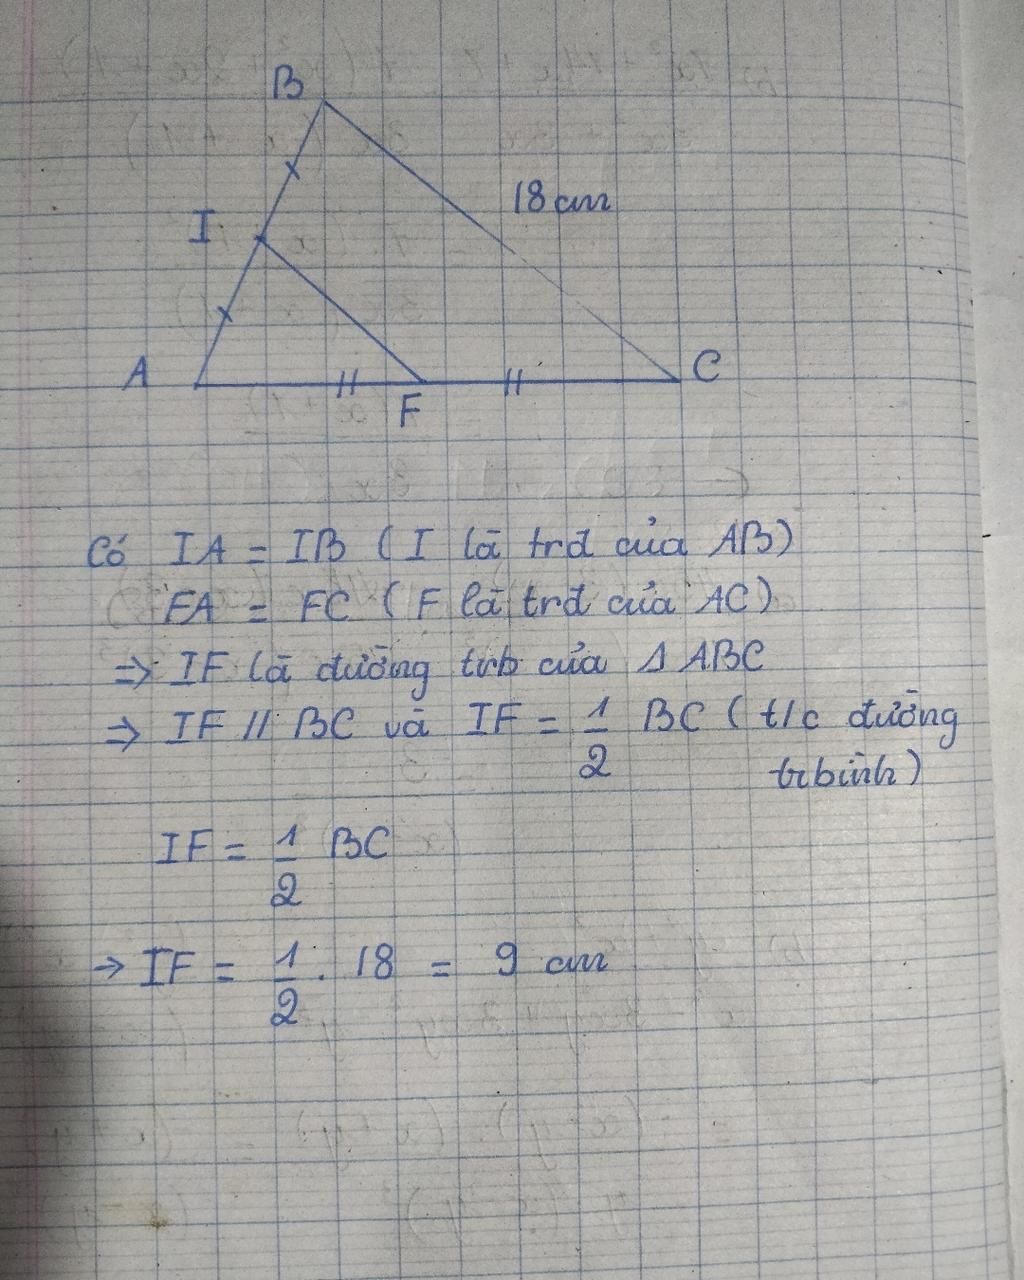 B
18 cm
I
A
F
C
Có IA = IB (I là trđ của AB)
FA = FC (F là trđ của AC)
=> IF là đường trb của Δ ABC
=> IF // BC và IF = 1/2 BC (t/c đường
trbình)
IF = 1/2 BC
→ IF = 1/2 . 18 = 9 cm